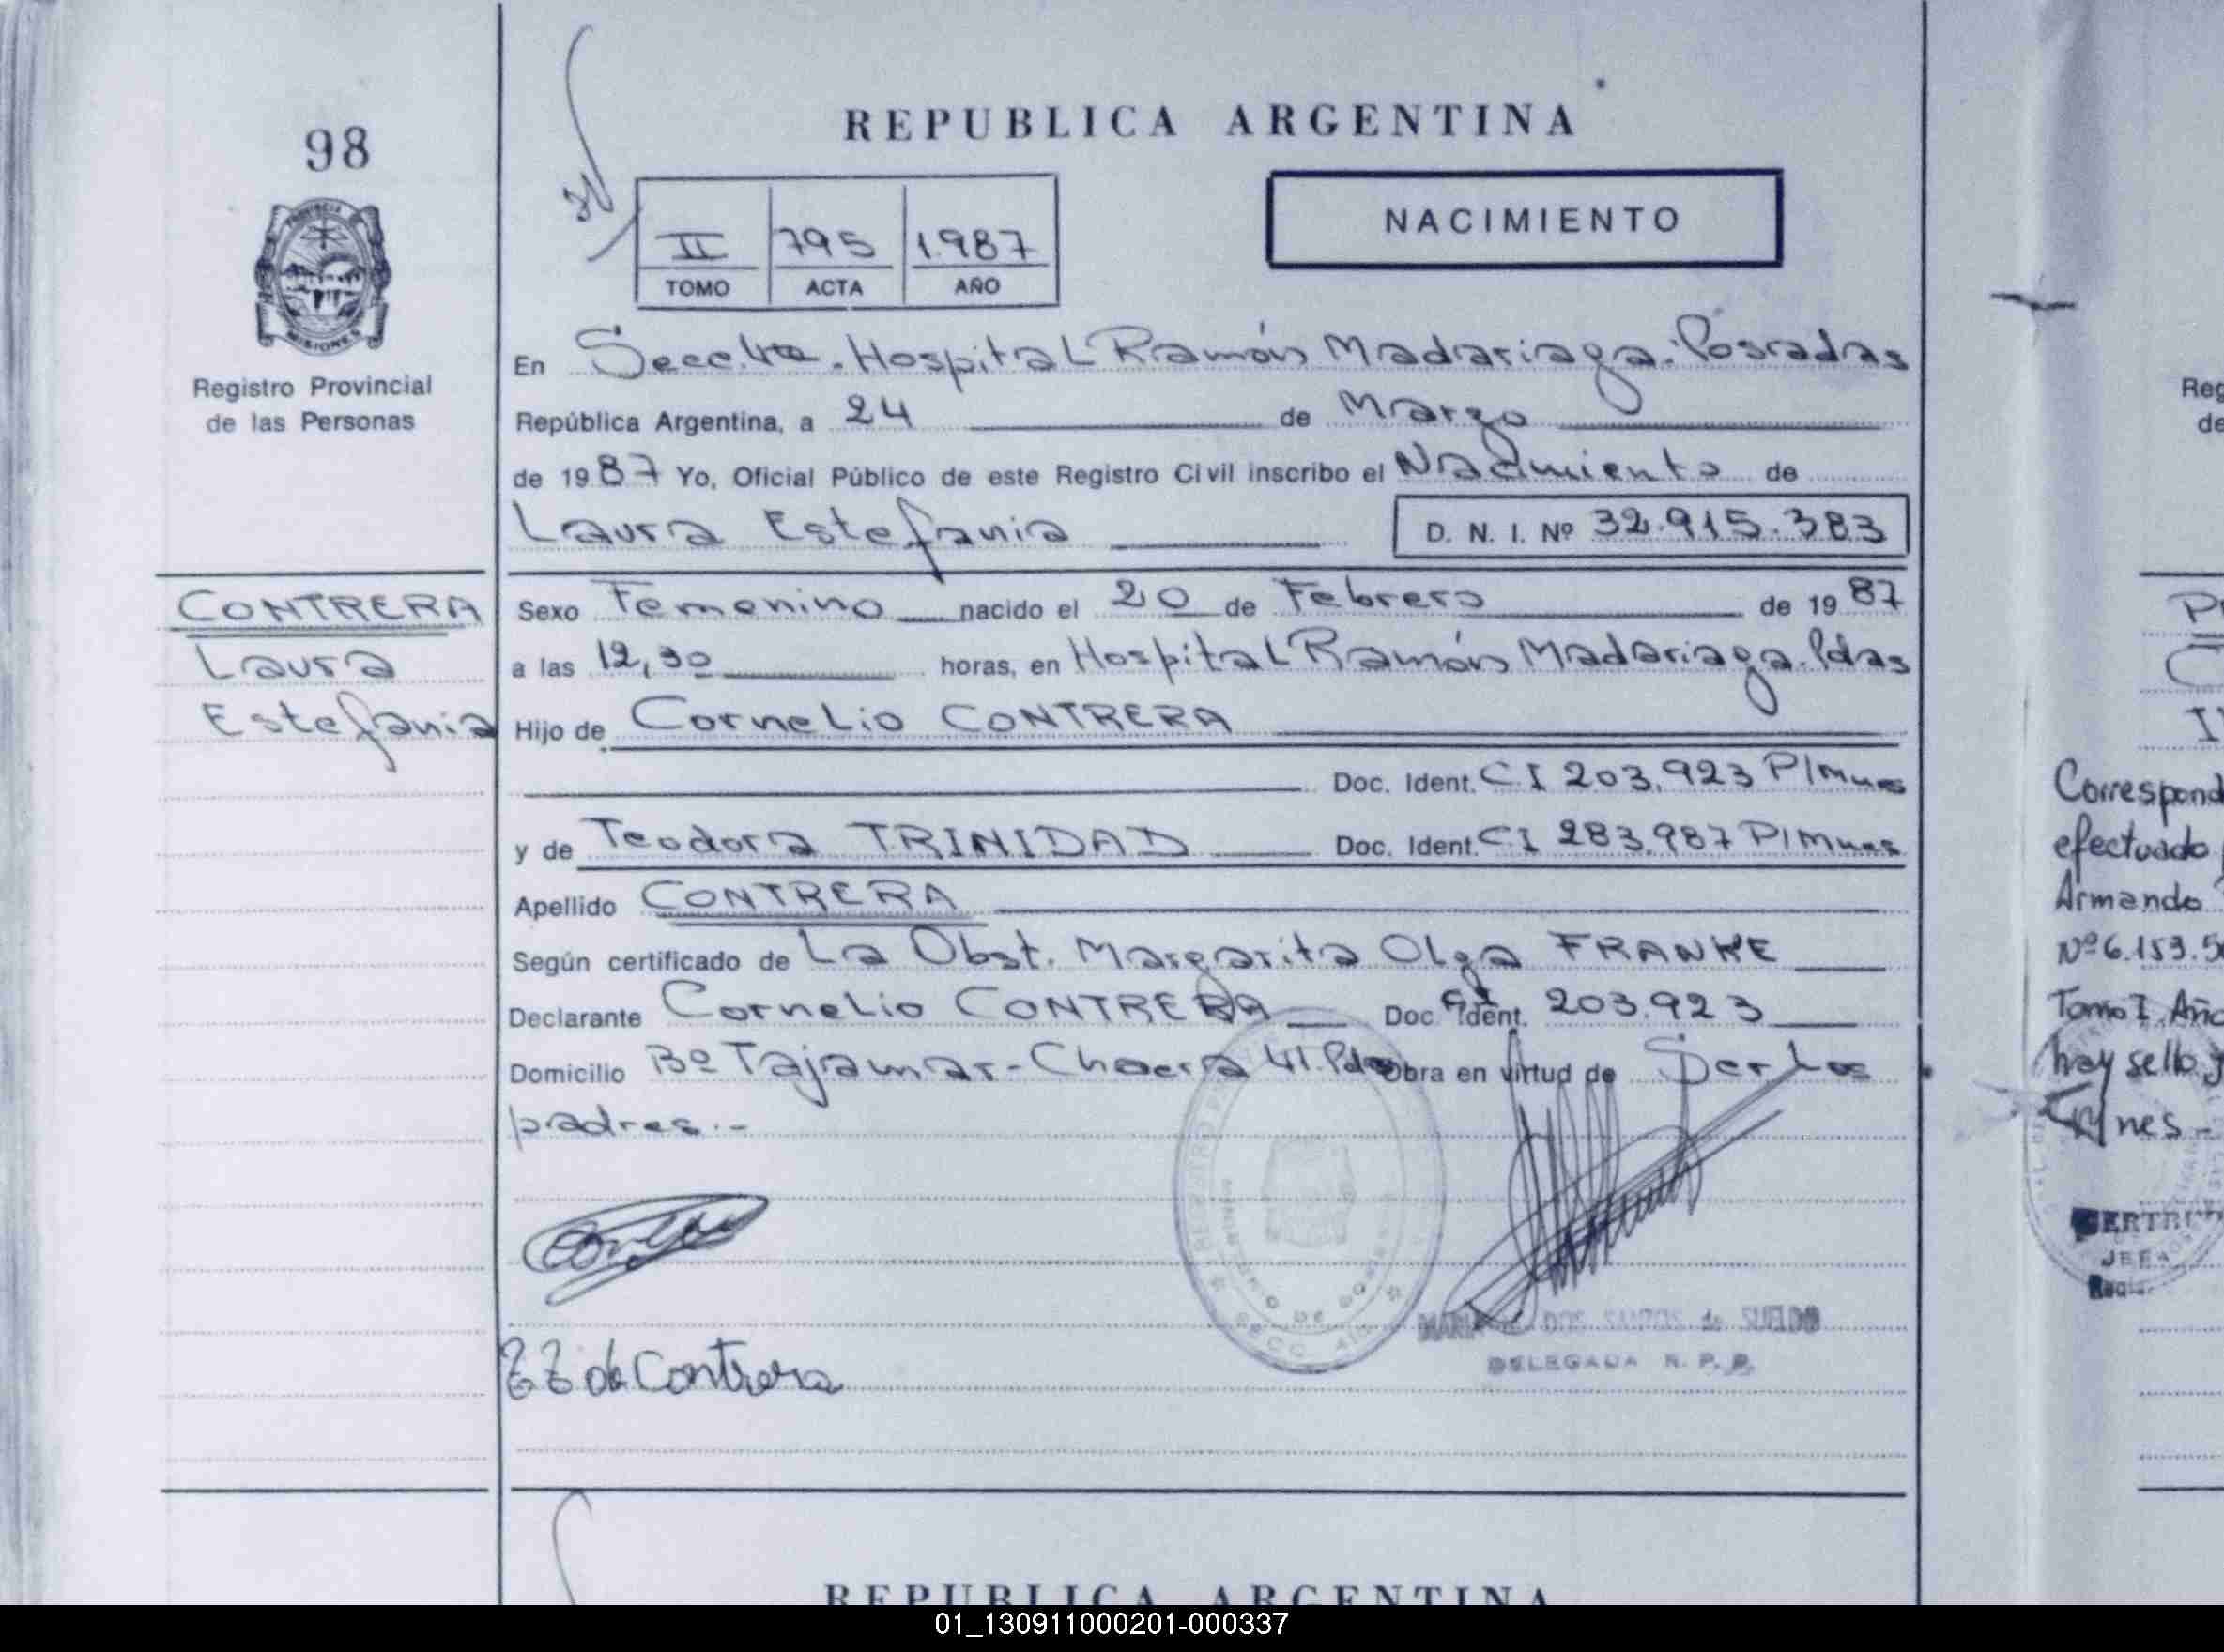 98
PROVINCIA
MISIONES
Registro Provincial
de las Personas
CONTRERA
Laura
Estefania
REPUBLICA ARGENTINA
II 795 1.987
TOMO ACTA AÑO
NACIMIENTO
En Secc. 4ta. Hospital Ramón Madariaga. Posadas
República Argentina, a 24 de Marzo
de 1987 Yo, Oficial Público de este Registro Civil inscribo el Nacimiento de
Laura Estefania D. N. I. Nº 32.915.383
Sexo Femenino nacido el 20 de Febrero de 1987
a las 12,30 horas, en Hospital Ramón Madariaga. Pdas
Hijo de Cornelio CONTRERA
Doc. Ident. CI 203.923 P/Mnes
y de Teodora TRINIDAD Doc. Ident. CI 283.987 P/Mnes
Apellido CONTRERA
Según certificado de La Obst. Margarita Olga FRANKE
Declarante Cornelio CONTRERA Doc. Ident. CI 203.923
Domicilio Bº Tajamar - Chacra 41. Pdas Obra en virtud de Ser Los
padres.-
de Contrera
DOS SANTOS de SUELDO
DELEGADA R. P. P.
REPUBLICA ARGENTINA
Reg
de
Correspond
efectuado
Armando
Nº 6.153.5
Tomo I. Año
hay sello y
Mnes -
JEFA
01_130911000201-000337